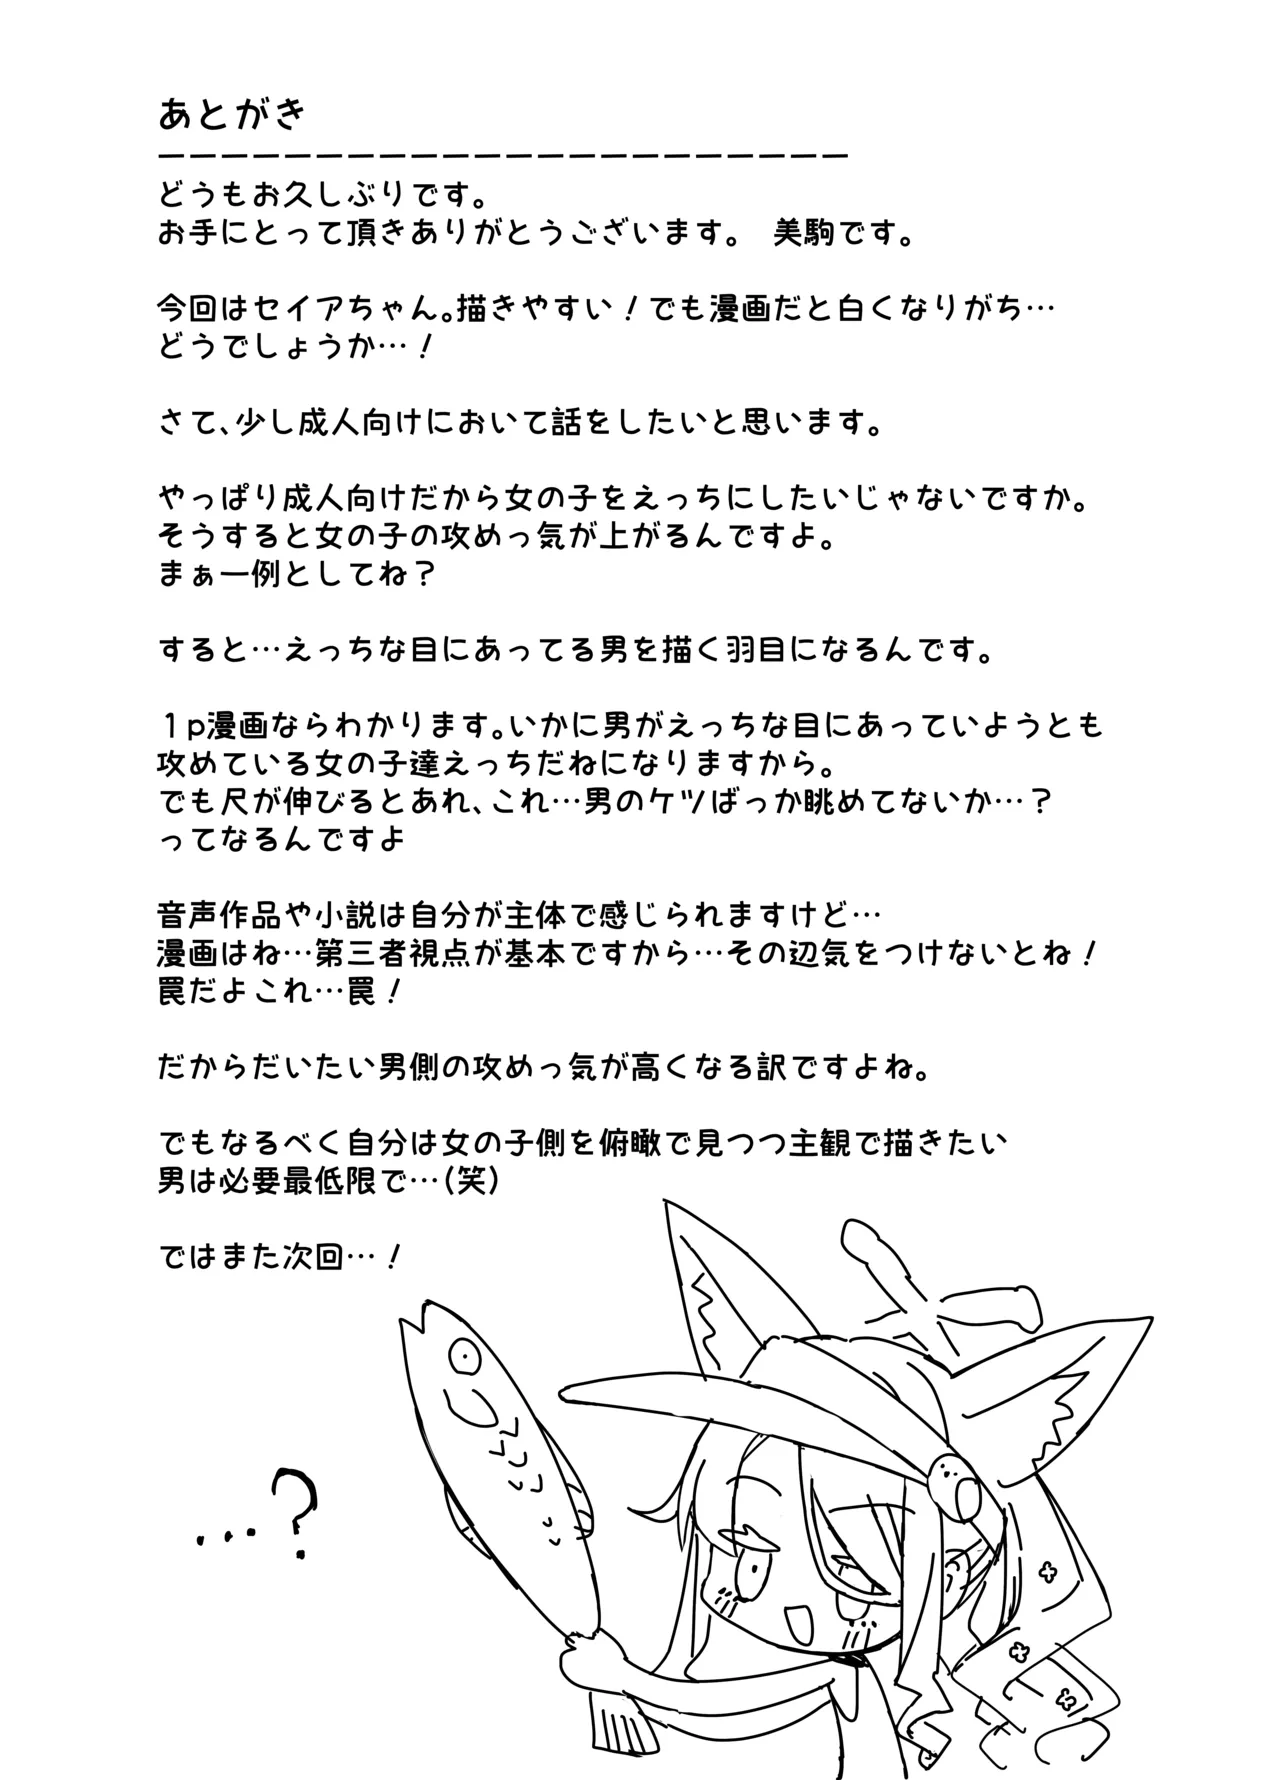 あとがき
ーーーーーーーーーーーーーーーーーーーーーー
どうもお久しぶりです。
お手にとって頂きありがとうございます。　美駒です。
今回はセイアちゃん。描きやすい！でも漫画だと白くなりがち…
どうでしょうか…！
さて、少し成人向けにおいて話をしたいと思います。
やっぱり成人向けだから女の子をえっちにしたいじゃないですか。
そうすると女の子の攻めっ気が上がるんですよ。
まぁ一例としてね？
すると…えっちな目にあってる男を描く羽目になるんです。
１p漫画ならわかります。いかに男がえっちな目にあっていようとも
攻めている女の子達えっちだねになりますから。
でも尺が伸びるとあれ、これ…男のケツばっか眺めてないか…？
ってなるんですよ
音声作品や小説は自分が主体で感じられますけど…
漫画はね…第三者視点が基本ですから…その辺気をつけないとね！
罠だよこれ…罠！
だからだいたい男側の攻めっ気が高くなる訳ですよね。
でもなるべく自分は女の子側を俯瞰で見つつ主観で描きたい
男は必要最低限で…(笑)
ではまた次回…！
…?